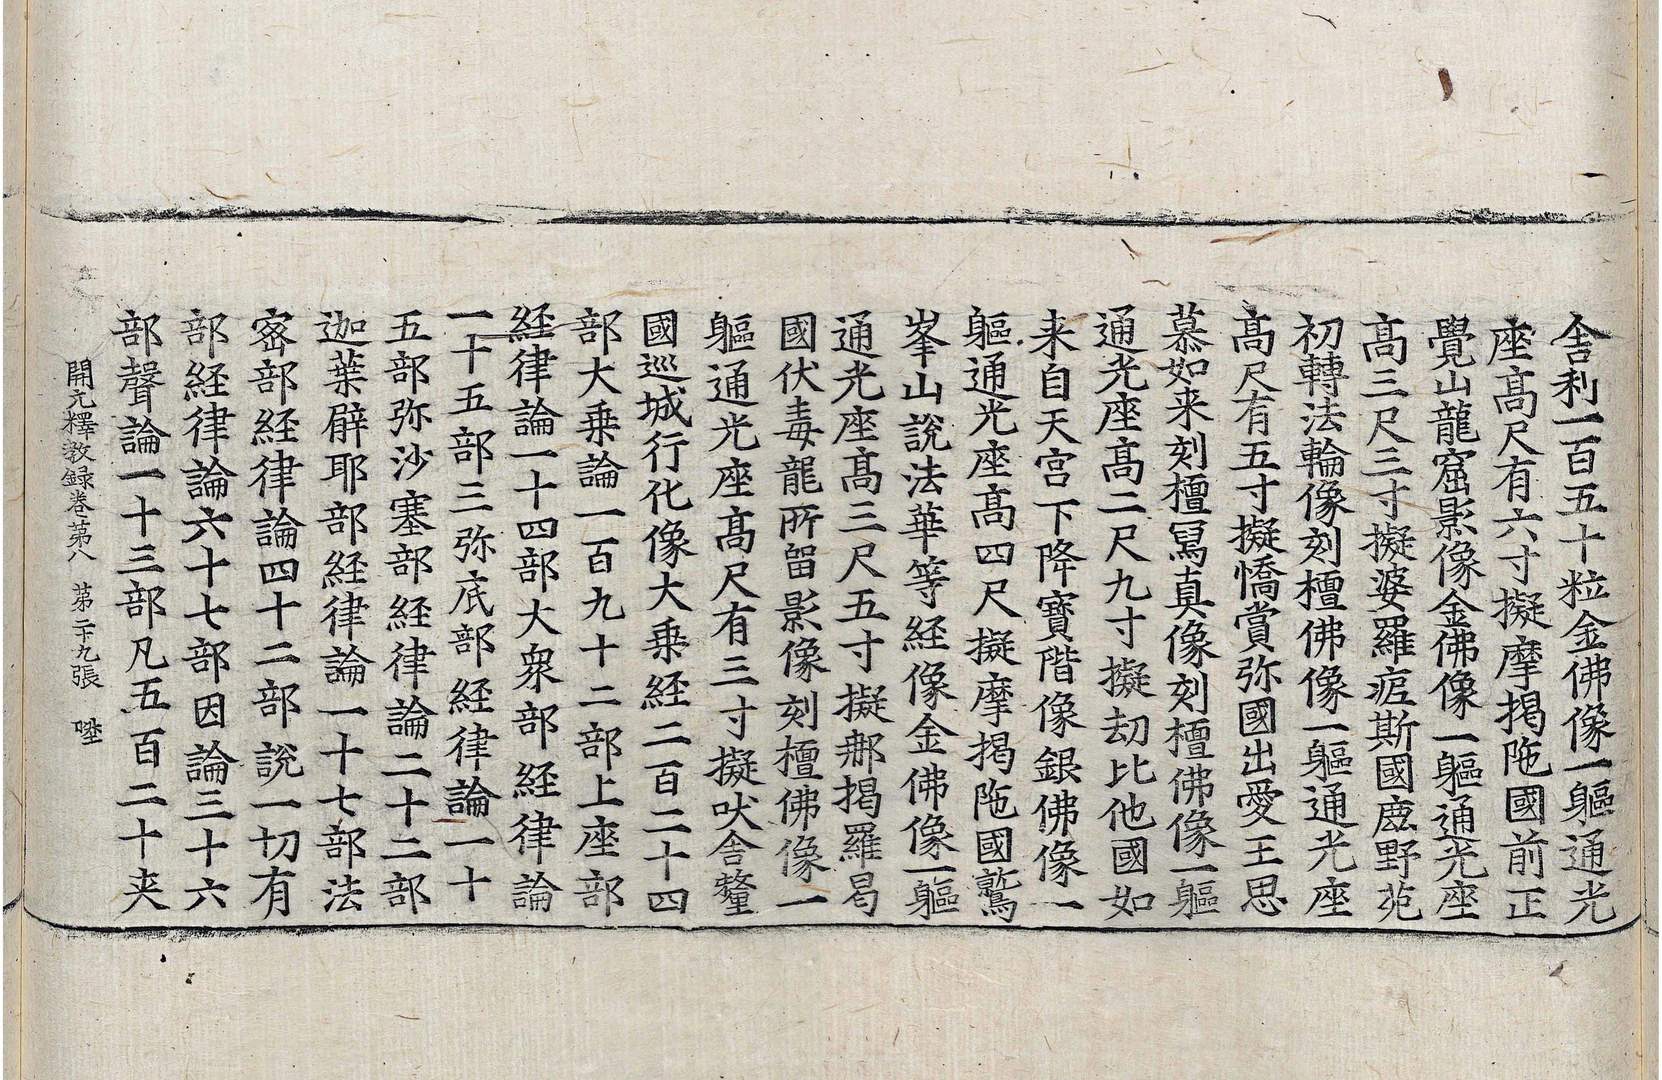 舎利一百五十粒金佛像一軀通光
座髙尺有六寸擬摩掲陁國前正
覺山龍窟影像金佛像一軀通光座
髙三尺三寸擬婆羅痆斯國鹿野苑
初轉法輪像刻檀佛像一軀通光座
髙尺有五寸擬憍賞弥國出愛王思
慕如来刻檀冩真像刻檀佛像一軀
通光座髙二尺九寸擬刧比他國如
来自天宫下降寳階像銀佛像一
軀通光座髙四尺擬摩掲陁國鷲
峯山說法華等経像金佛像一軀
通光座髙三尺五寸擬郍掲羅曷
國伏毒龍所留影像刻檀佛像一
軀通光座髙尺有三寸擬吠舎釐
國巡城行化像大乗経二百二十四
部大乗論一百九十二部上座部
経律論一十四部大衆部経律論
一十五部三弥底部経律論一十
五部弥沙塞部経律論二十二部
迦葉臂耶部経律論一十七部法
宻部経律論四十二部說一切有
部経律論六十七部因論三十六
部聲論一十三部凡五百二十夾
開元釋教録卷第八 第二十九張